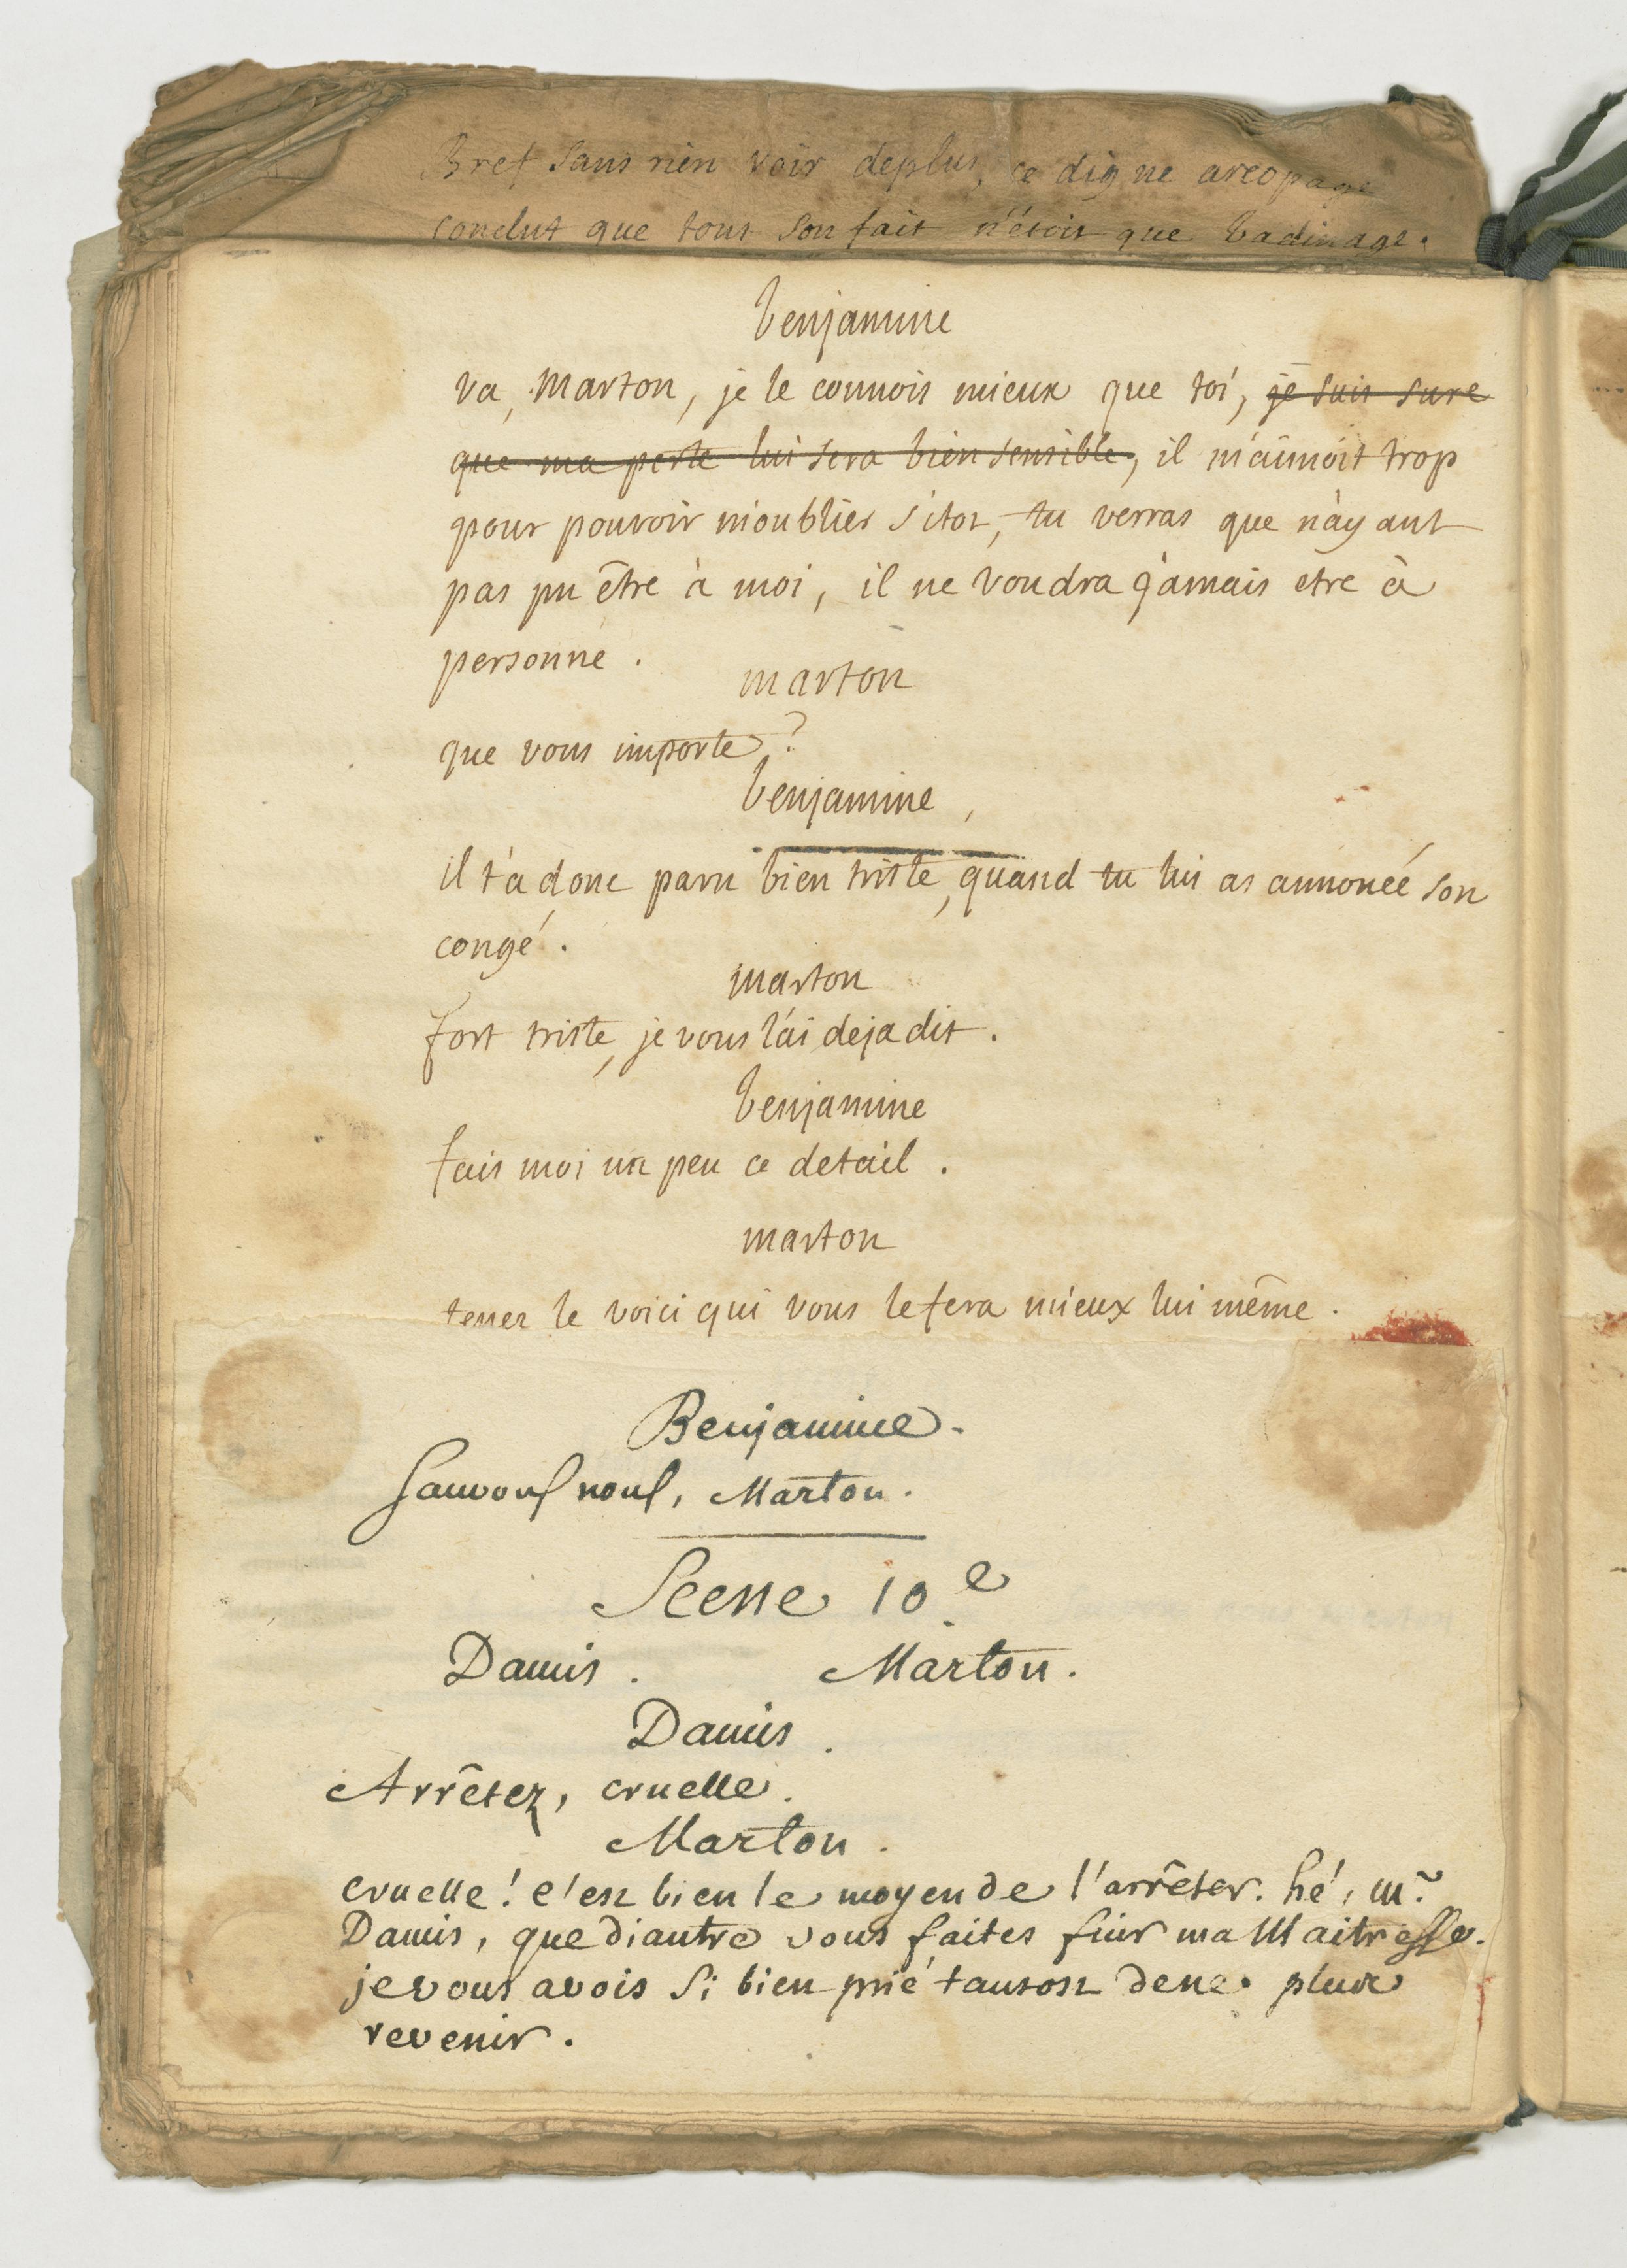 Bret sans rien voir deplus, ce digne areopage
conclut que tout son fait n'étoit que badinage.
benjamine
va, Marton, je le connois mieux que toi, je suis sure
que ma perte lui sera bien sensible, il m'aimoit trop
pour pouvoir m'oublier sitot, tu verras que n'ayant
pas pu être à moi, il ne voudra jamais etre à
personne.
marton
que vous importe ?
benjamine,
il t'a donc paru bien triste, quand tu lui as annoncé son
congé.
marton
fort triste, je vous l'ai deja dit.
benjamine
fais moi un peu ce detail.
marton
tenez le voici qui vous le fera mieux lui même.
Benjamine.
sauvons nous, Marton.
Scene 10e
Damis. Marton.
Damis.
Arrêtez, cruelle.
Marton.
cruelle! c'est bien le moyen de l'arrêter. hé, mr
Damis, que diantre vous faites fuir ma Maitresse.
je vous avois si bien prié tantost de ne plus
revenir.